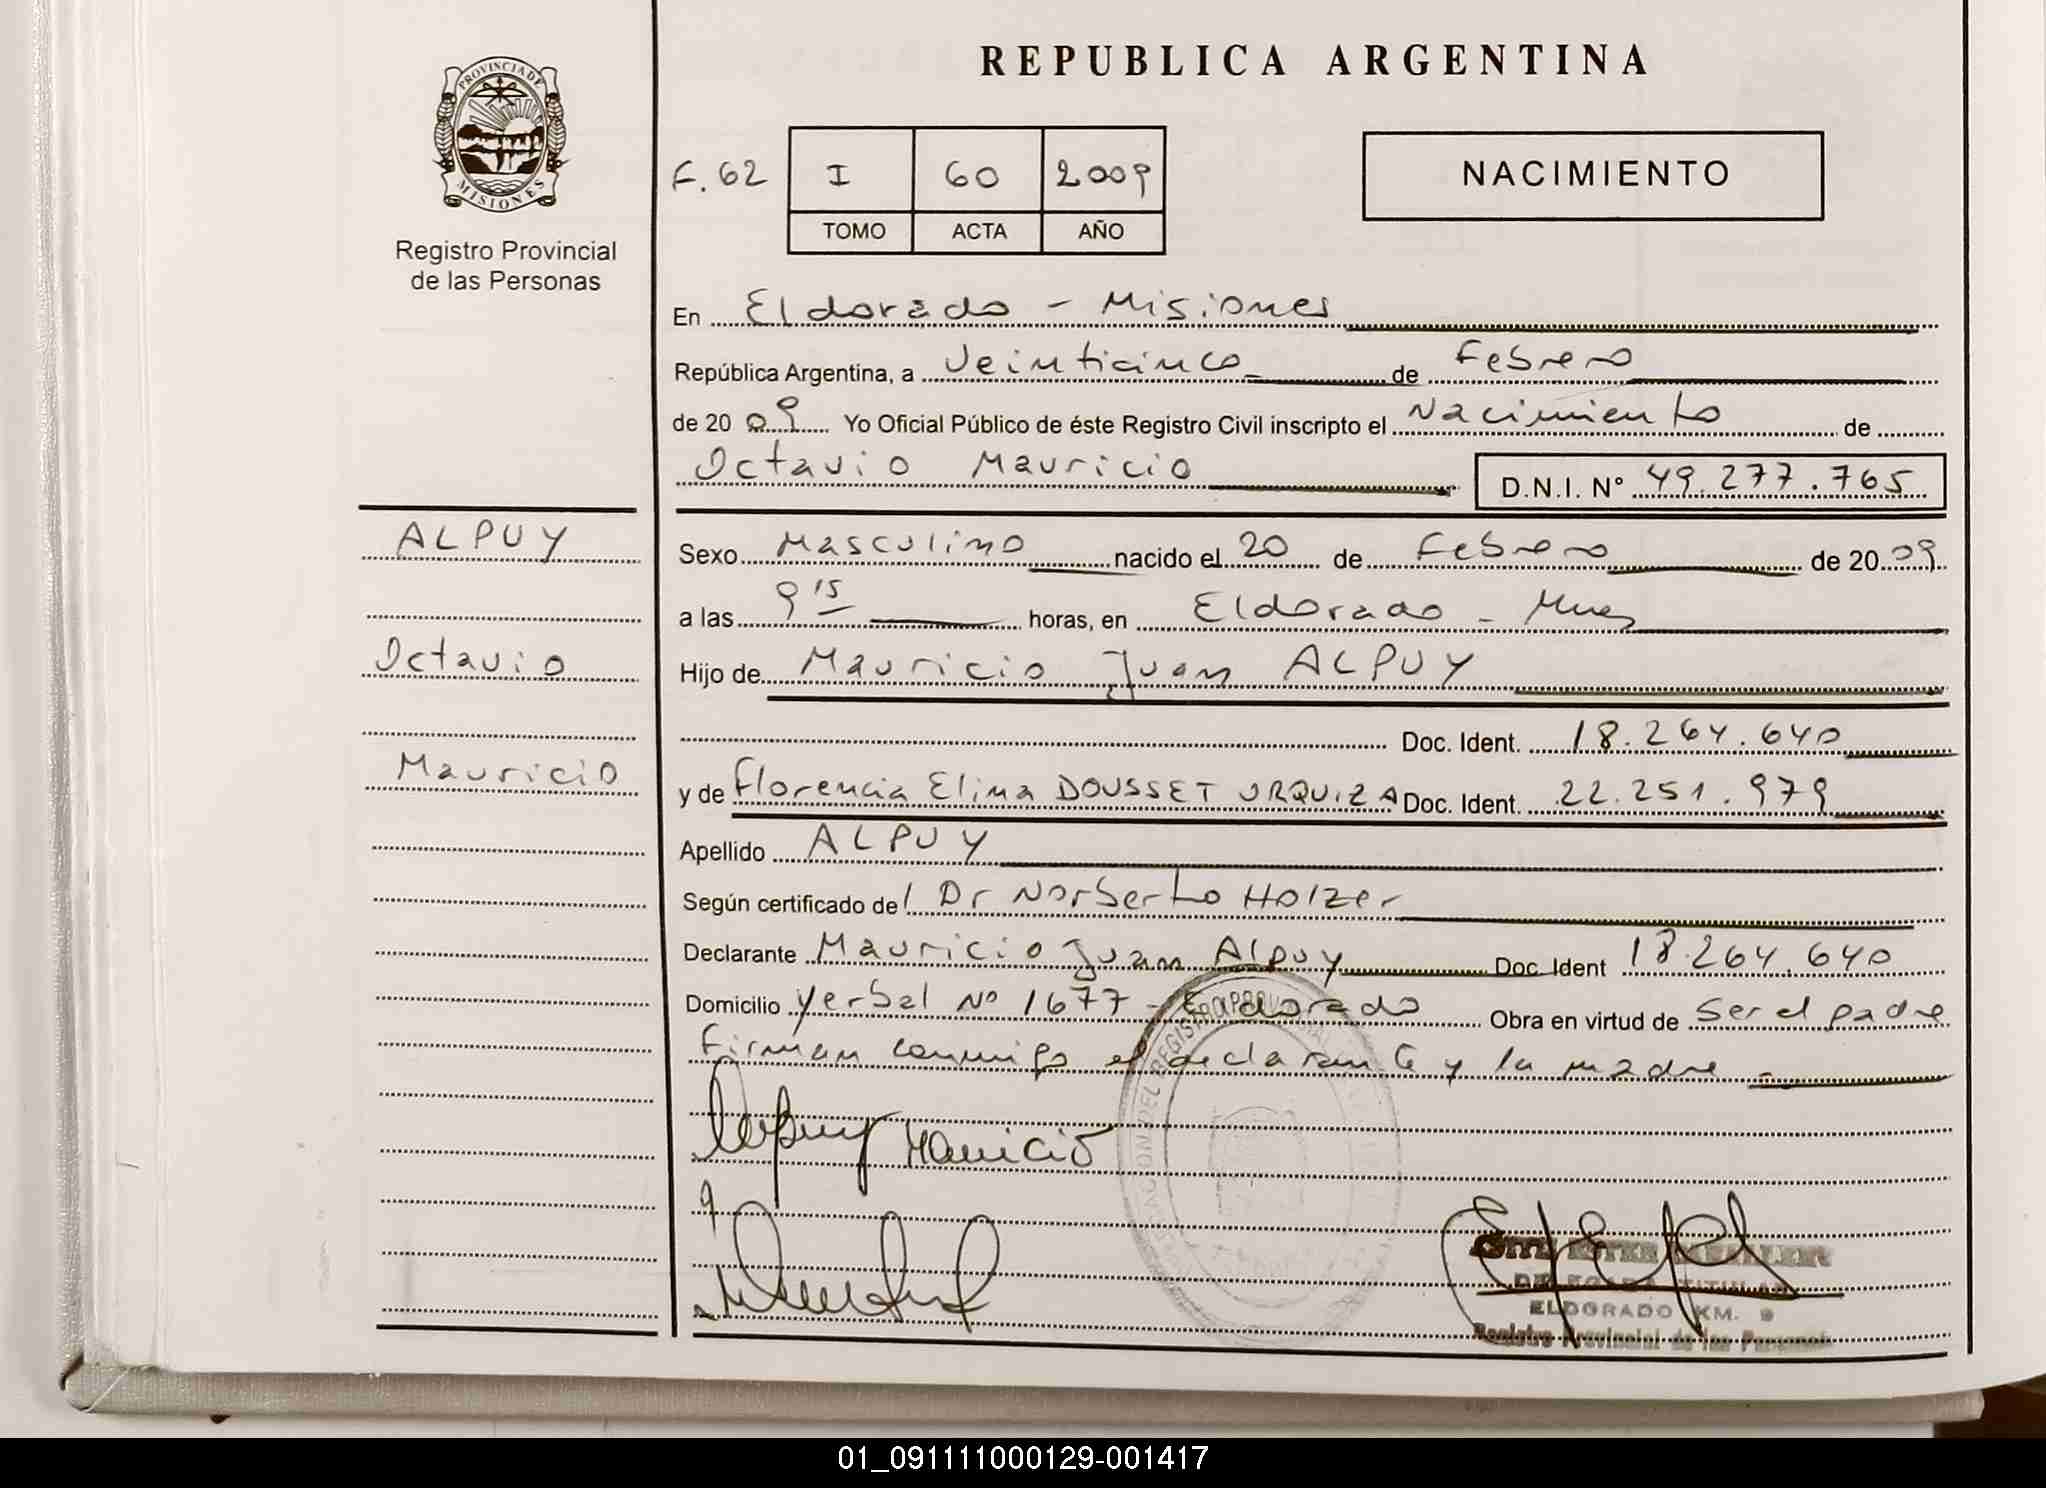 PROVINCIA DE
MISIONES
Registro Provincial
de las Personas
ALPUY
Octavio
Mauricio
REPUBLICA ARGENTINA
F. 62 I 60 2009
TOMO ACTA AÑO
NACIMIENTO
En Eldorado - Misiones
República Argentina, a Veinticinco de Febrero
de 2009 Yo Oficial Público de éste Registro Civil inscripto el Nacimiento de
Octavio Mauricio D.N.I. N° 49.277.765
Sexo Masculino nacido el 20 de Febrero de 2009
a las 9 15 horas, en Eldorado - Mnes
Hijo de Mauricio Juan ALPUY
Doc. Ident. 18.264.640
y de Florencia Elina DOUSSET URQUIZA Doc. Ident. 22.251.979
Apellido ALPUY
Según certificado del Dr Norberto Holzer
Declarante Mauricio Juan Alpuy Doc. Ident 18.264.640
Domicilio Yerbal Nº 1677 - Eldorado Obra en virtud de ser el padre
Firman conmigo el declarante y la madre -
Alpuy Mauricio
DELEGADA TITULAR
ELDORADO KM. 9
Registro Provincial de las Personas
01_091111000129-001417